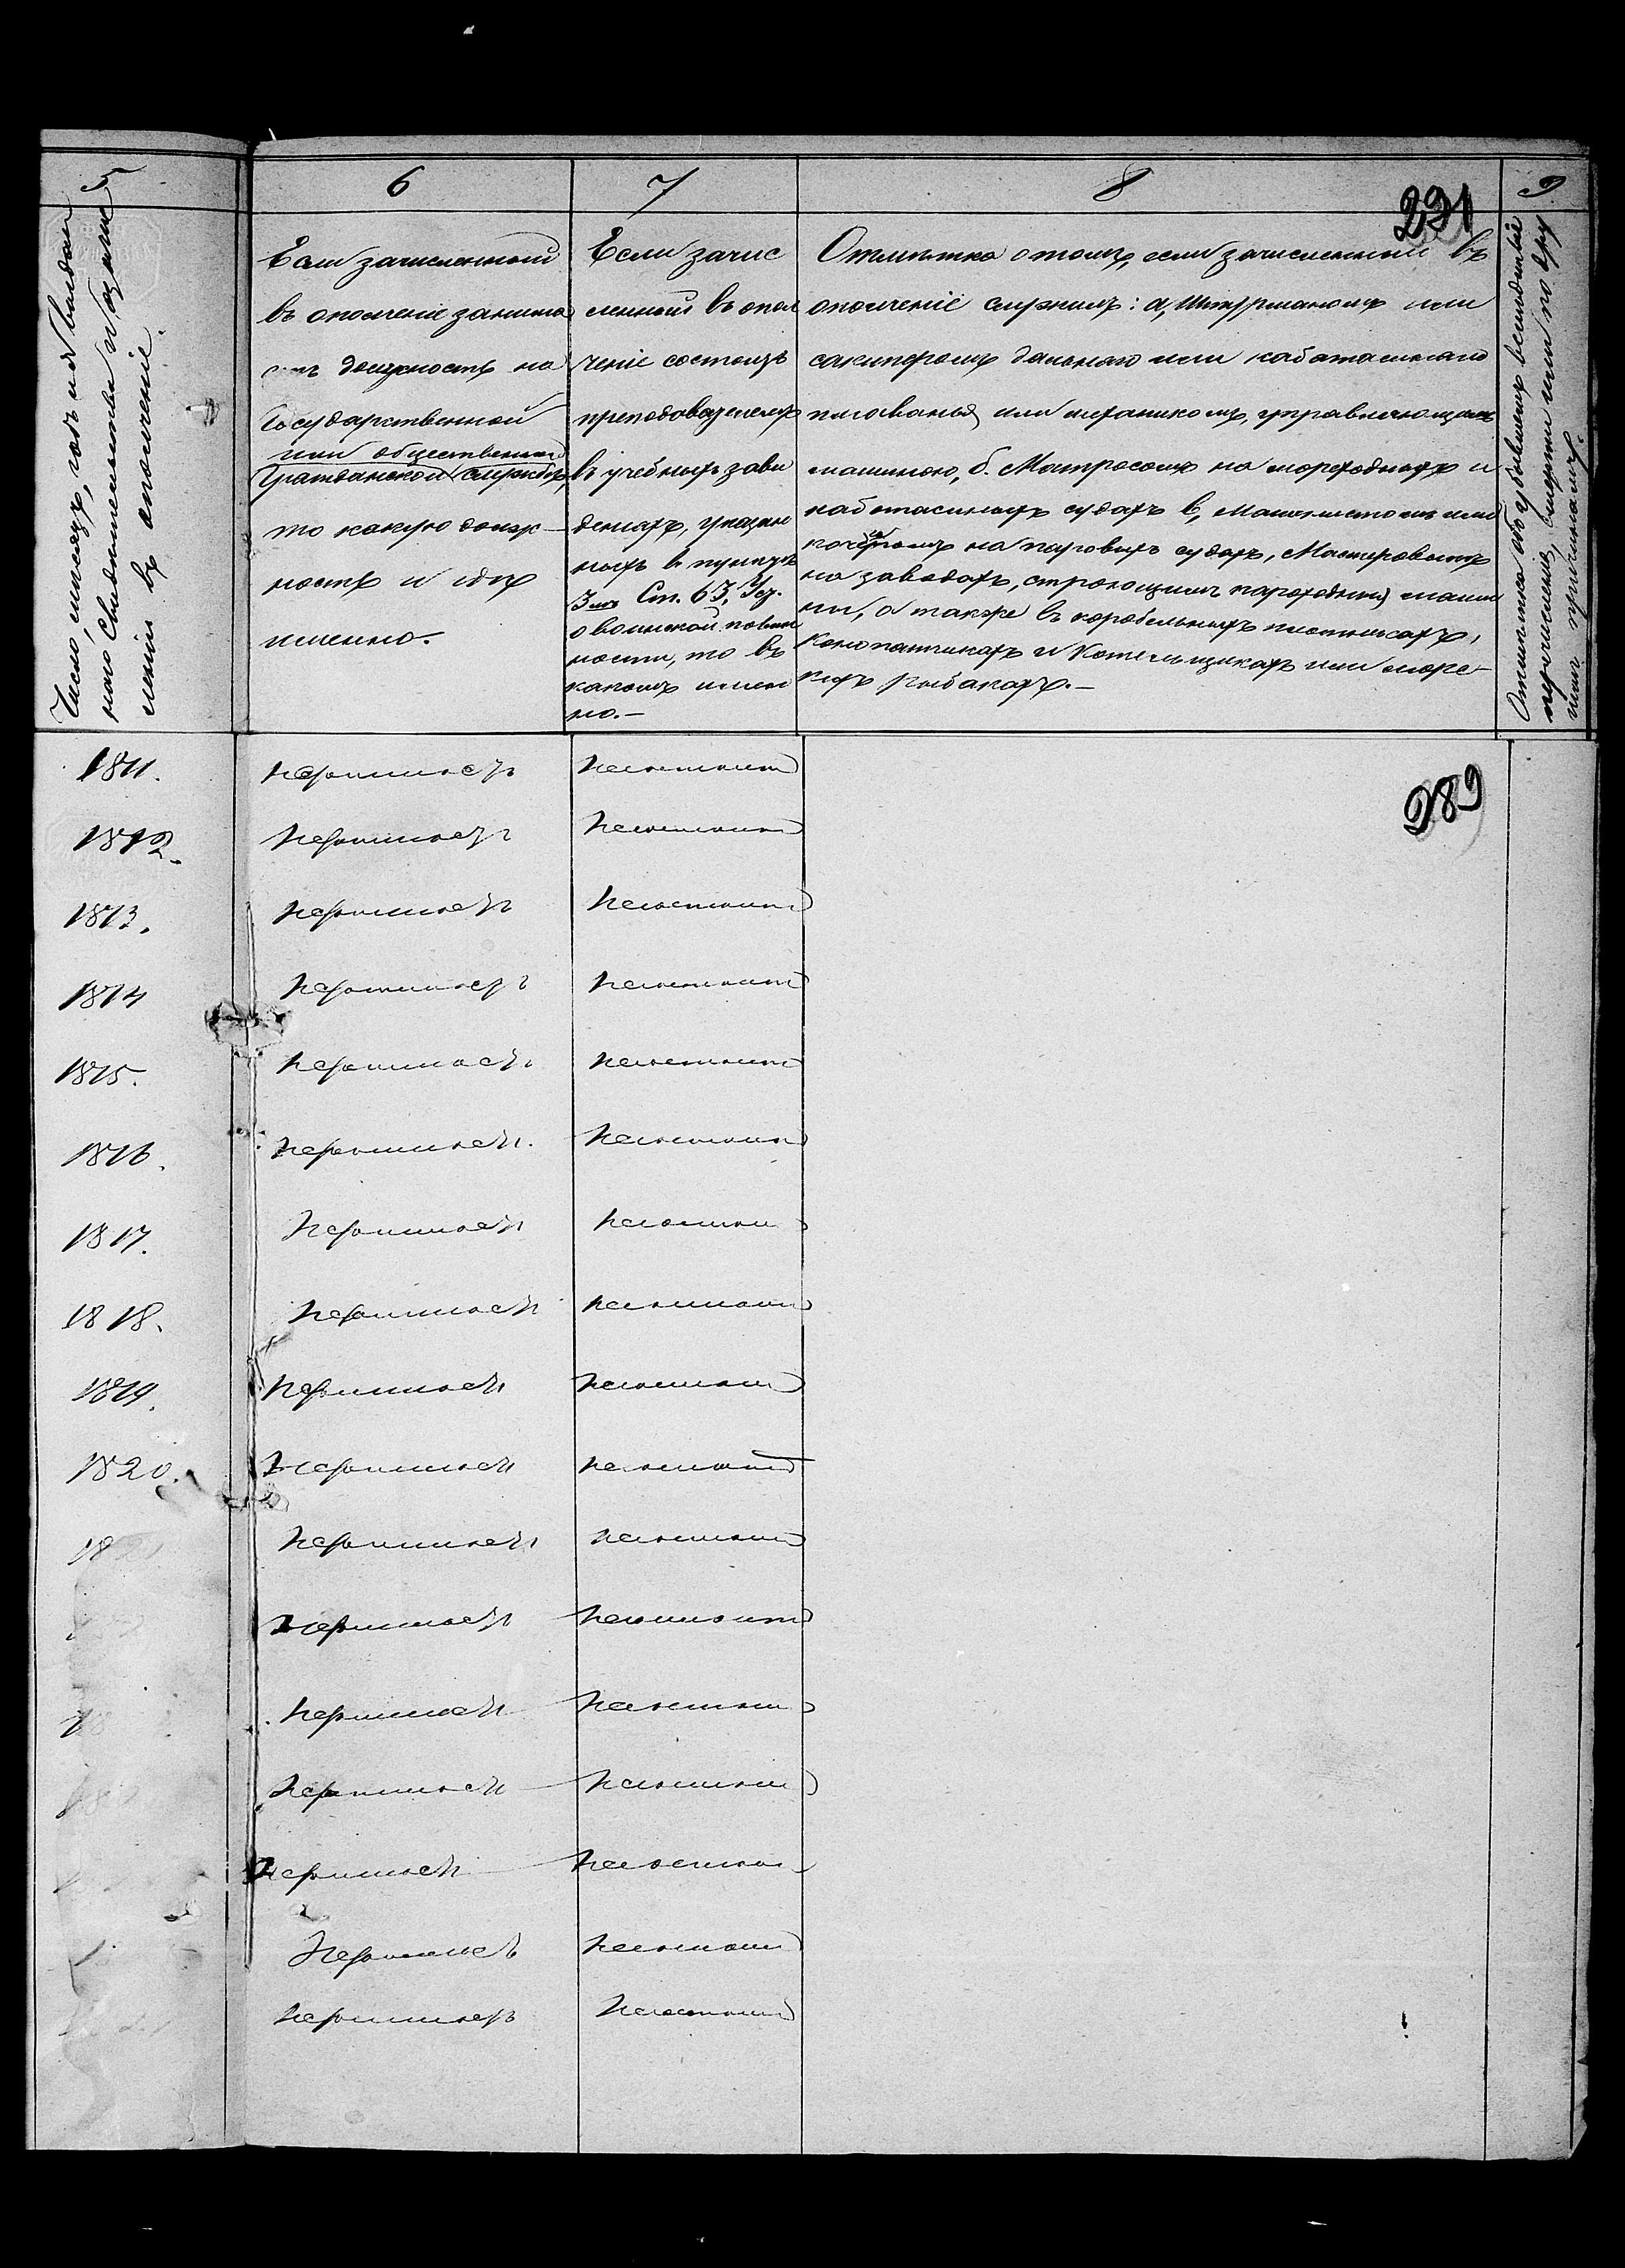 5
6
7
8
9
231
Число, мѣсяцъ, годъ и № выдан
наго Свидѣтельства о зачис
леніи въ ополченіе.
Если зачисленный
въ ополченіе занима
етъ должность на
Государственной
или общественной
Гражданской службѣ,
то какую долж-
ность и гдѣ
именно.
Если зачис
ленный въ опол
ченіе состоитъ
преподавателемъ
въ учебныхъ заве
деніяхъ, указан
ныхъ въ пунктѣ
3мъ Ст. 63, Уст.
о воинской повин
ности, то въ
какомъ имен
но.—
Отмѣтка о томъ, если зачисленный въ
ополченіе служилъ: а, штурманомъ или
шкиперомъ дальняго или каботажнаго
плаванья или механикомъ, управляющимъ
машиною, б. Матросомъ на мореходныхъ и
каботажныхъ судахъ в, Машинистомъ или
кочегаромъ на паровыхъ судахъ, Мастеровымъ
на заводахъ, строющихъ пароходныя маши
ны, а также въ корабельныхъ плотникахъ,
Конопатчикахъ и Котельщикахъ или морс-
кихъ рыбакахъ.—
Отмѣтка объ убывшихъ вслѣдствіе
перечисленія, смерти или по дру
гимъ причинамъ.
289
1811. незанимаетъ несостоитъ
1812. незанимаетъ несостоитъ
1813. незанимаетъ несостоитъ
1814 незанимаетъ несостоитъ
1815. незанимаетъ несостоитъ
1816. незанимаетъ несостоитъ
1817. незанимаетъ несостоитъ
1818. незанимаетъ несостоитъ
1819. незанимаетъ несостоитъ
1820. незанимаетъ несостоитъ
1821 незанимаетъ несостоитъ
незанимаетъ несостоитъ
незанимаетъ несостоитъ
незанимаетъ несостоитъ
незанимаетъ несостоитъ
незанимаетъ несостоитъ
незанимаетъ несостоитъ